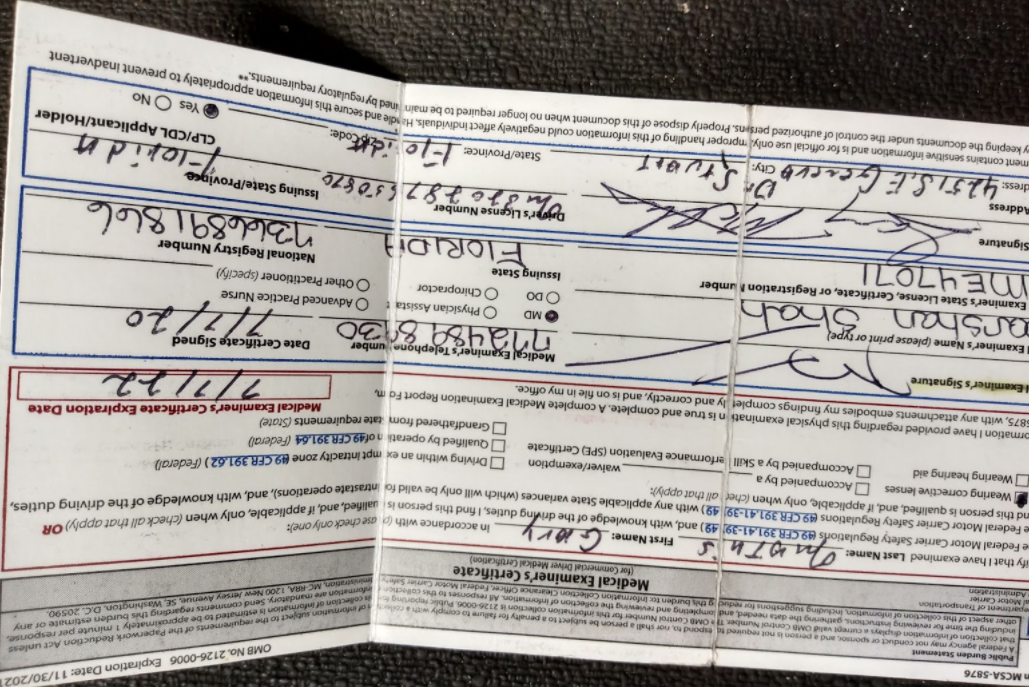 MCSA-5876
OMB No. 2126-0006 Expiration Date: 11/30/202
Public Burden Statement
A Federal agency may not conduct or sponsor, and a person is not required to respond to, nor shall a person be subject to a penalty for failure to comply with a collection of information subject to the requirements of the Paperwork Reduction Act unless
that collection of information displays a current valid OMB Control Number. The OMB Control Number for this information collection is 2126-0006. Public reporting for this collection of information is estimated to be approximately 1 minute per response,
including the time for reviewing instructions, gathering the data needed, and completing and reviewing the collection of information. All responses to this collection of information are mandatory. Send comments regarding this burden estimate or any
other aspect of this collection of information, including suggestions for reducing this burden to: Information Collection Clearance Officer, Federal Motor Carrier Safety Administration, MC-RRA, 1200 New Jersey Avenue, SE, Washington, D.C. 20590.
Department of Transportation
Motor Carrier
Administration
Medical Examiner's Certificate
(for Commercial Driver Medical Certification)
ify that I have examined Last Name: First Name: Gary in accordance with (please check only one):
e Federal Motor Carrier Safety Regulations (49 CFR 391.41-391.49) and, with knowledge of the driving duties, I find this person is qualified, and, if applicable, only when (check all that apply) OR
e Federal Motor Carrier Safety Regulations (49 CFR 391.41-391.49) with any applicable State variances (which will only be valid for intrastate operations), and, with knowledge of the driving duties,
nd this person is qualified, and, if applicable, only when (check all that apply):
Wearing corrective lenses Accompanied by a waiver/exemption Driving within an exempt intracity zone (49 CFR 391.62) (Federal)
Wearing hearing aid Accompanied by a Skill Performance Evaluation (SPE) Certificate Qualified by operation of 49 CFR 391.64 (Federal)
Grandfathered from State requirements (State)
formation I have provided regarding this physical examination is true and complete. A complete Medical Examination Report Form,
5875, with any attachments embodies my findings completely and correctly, and is on file in my office.
Medical Examiner's Certificate Expiration Date
7/7/22
l Examiner's Signature Medical Examiner's Telephone Number Date Certificate Signed
7724898930 7/7/20
l Examiner's Name (please print or type) MD Physician Assistant Advanced Practice Nurse
arshan Shah DO Chiropractor Other Practitioner (specify)
Examiner's State License, Certificate, or Registration Number Issuing State National Registry Number
ME47071 FLORIDA 7366891866
Signature Driver's License Number Issuing State/Province
Florida
Address CLP/CDL Applicant/Holder
dress: 4251 S.E Geneva Dr City: Stuart State/Province: Florida Zip Code: Yes No
ment contains sensitive information and is for official use only. Improper handling of this information could negatively affect individuals. Handle and secure this information appropriately to prevent inadvertent
y keeping the documents under the control of authorized persons. Properly dispose of this document when no longer required to be maintained by regulatory requirements.**